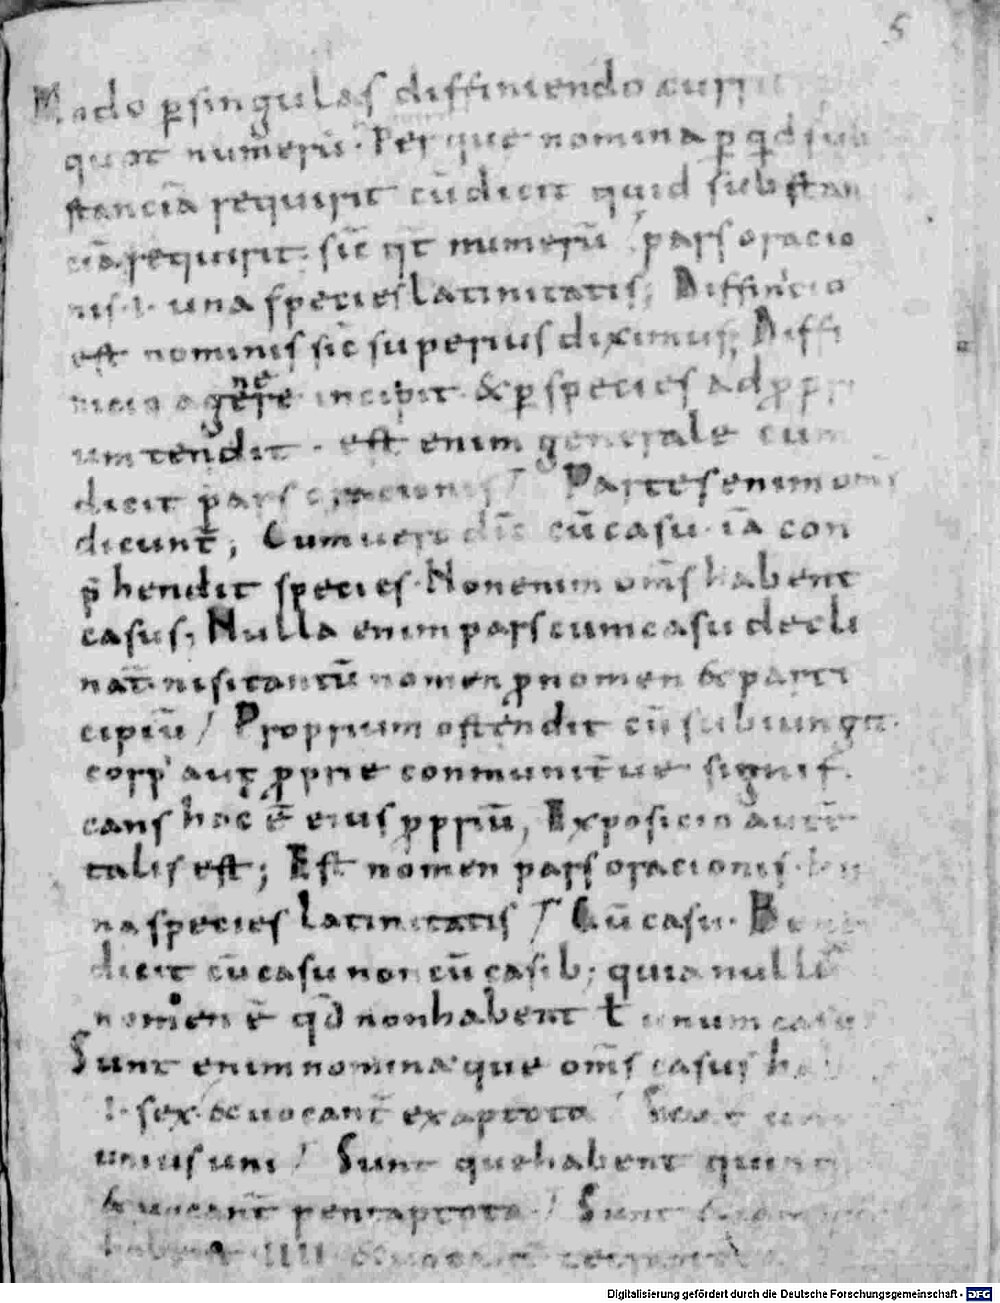 5
Modo p singulas diffiniendo curri
quot numerū. Per que nomina p qd sub
stanciā requirit cū dicit quid substan
ciā requirit. sic̄ qt̄ numerū / pars oracio
nis .i. una species latinitatis; Diffinicio
est nominis sic̄ superius diximus; Diffi
nicio a genere incipit & p species ad prop
um tendit. est enim generale cum
dicit pars oracionis / Partes enim om̄s
dicunt̄; Cum vero dic̄ cū casu. iā con
p̄hendit species. Non enim om̄s habent
casus; Nulla enim pars cum casu decli
nat̄. nisi tantū nomen pronomen & parti
cipiū / Proprium ostendit cū subiungit.
corp' aut p̄prie conmunit̄ue signifi
cans hoc ē eius p̄priū, Exposicio aut̄
talis est; Est nomen pars oracionis. i. u
na species latinitatis / Cū casu. Bene
dicit cū casu non cū casib; quia nullū
nomen ē qd̄ non habent ł unum casu
Sunt enim nominæ que om̄s casus ha
.i. sex. & vocant̄ exaptota /
unius uni / Sunt que habent quinq
& vocant̄ pentaptota / Sunt
habent IIII & vocant̄
Digitalisierung gefördert durch die Deutsche Forschungsgemeinschaft - DFG